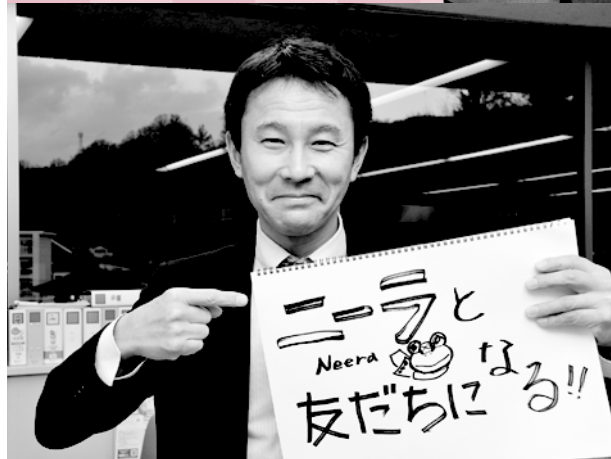 ニーラと
Neera
友だちになる!!